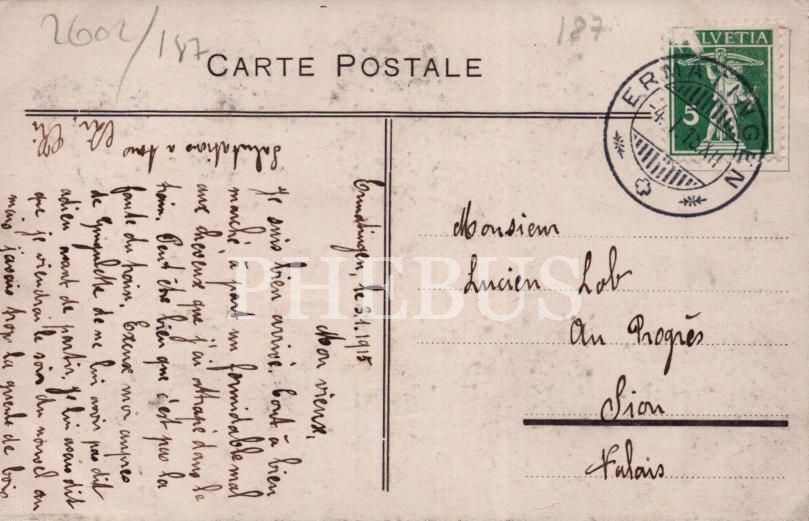 2602/187
187
CARTE POSTALE
HELVETIA
5
ERMATINGEN
Ermatingen, le 3.1.1915
Mon vieux,
Je suis bien arrivé. Tout a bien
marché à part un formidable mal
aux cheveux que j'ai attrapé dans le
train. Peut être bien que c'est pas la
faute du train. Excuse moi auprès
de de ne lui avoir pas dit
adieu avant de partir, je lui avais dit
que je viendrai le soir du nouvel an
mais j'avais trop la gueule de bois
Salutations à tous
Monsieur
Lucien Lob
Au Progrès
Sion
Valais
PHEBUS